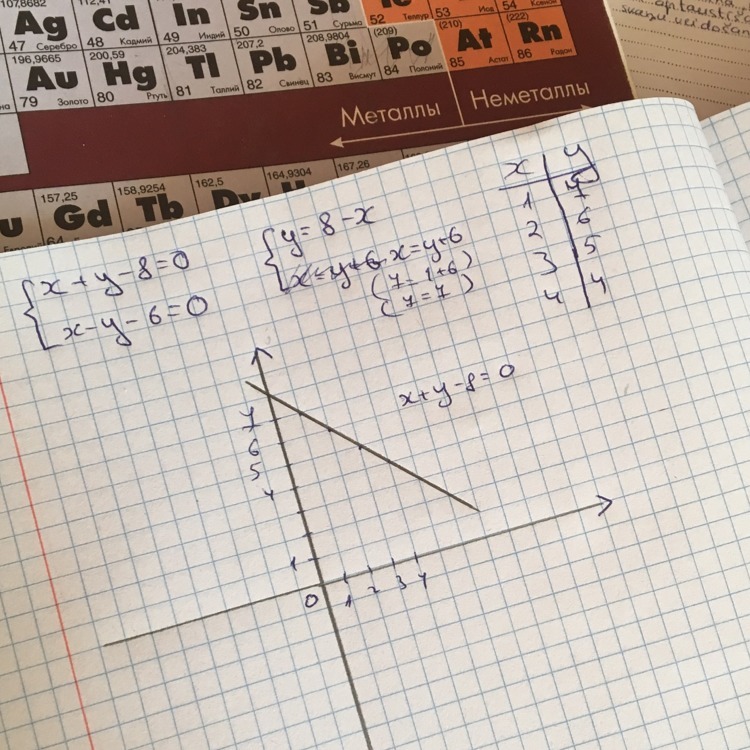 107,8682 112,41
Ag Cd In Sn Sb
47 Серебро 48 Кадмий 49 Индий 50 Олово 51 Сурьма 52 Теллур 53 Иод 54 Ксенон
196,9665 200,59 204,383 207,2 208,9804 (209) (210) (222)
Au Hg Tl Pb Bi Po At Rn
79 Золото 80 Ртуть 81 Таллий 82 Свинец 83 Висмут 84 Полоний 85 Астат 86 Радон
Металлы Неметаллы
157,25 158,9254 162,5 164,9304 167,26
Gd Tb Dy
64
x + y - 8 = 0
x - y - 6 = 0
y = 8 - x
x = y + 6 x = y + 6
7 = 1 + 6
7 = 7
x y
1 7
2 6
3 5
4 4
x + y - 8 = 0
7
6
5
4
1
0 1 2 3 4